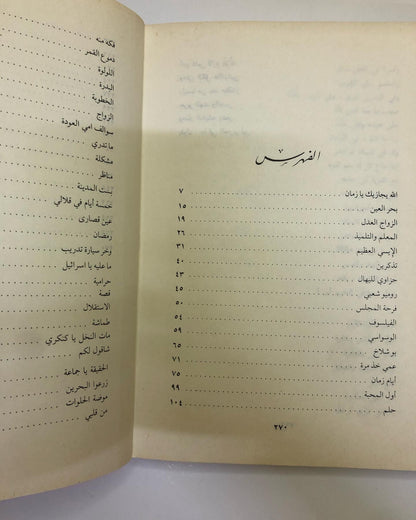 الفهرس
الله يجازيك يا زمان ٧
بحر العين ١٥
الزواج العدل ١٩
المعلم والتلميذ ٢٦
الإيسي العظيم ٣١
تذكرين ٤٠
جزاوي لليهال ٤٣
روميو شعبي ٤٥
فرحة المجلس ٥٠
الفيلسوف ٥٤
الوسواسي ٥٩
بو شلاخ ٦٥
عمي خذ مرة ٧١
أيام زمان ٧٥
أول المحبة ٩٩
حلم ١٠٤
٢٧٠
فكه منه
دموع القمر
اللولوة
البدرة
الخطوبة
الزواج
سوالف امي العودة
ما تدري
مشكلة
مناظر
بنت المدينة
خمسة أيام في قلالي
عين قصارى
رمضان
وخر سيارة تدريب
ما عليه يا اسرائيل
حرامية
قصة
الاستقلال
طماشة
مات النخل يا كنكري
شاقول لكم
الحقيقة يا جماعة
زرعوا البحرين
موضة الحلوات
من قلبي